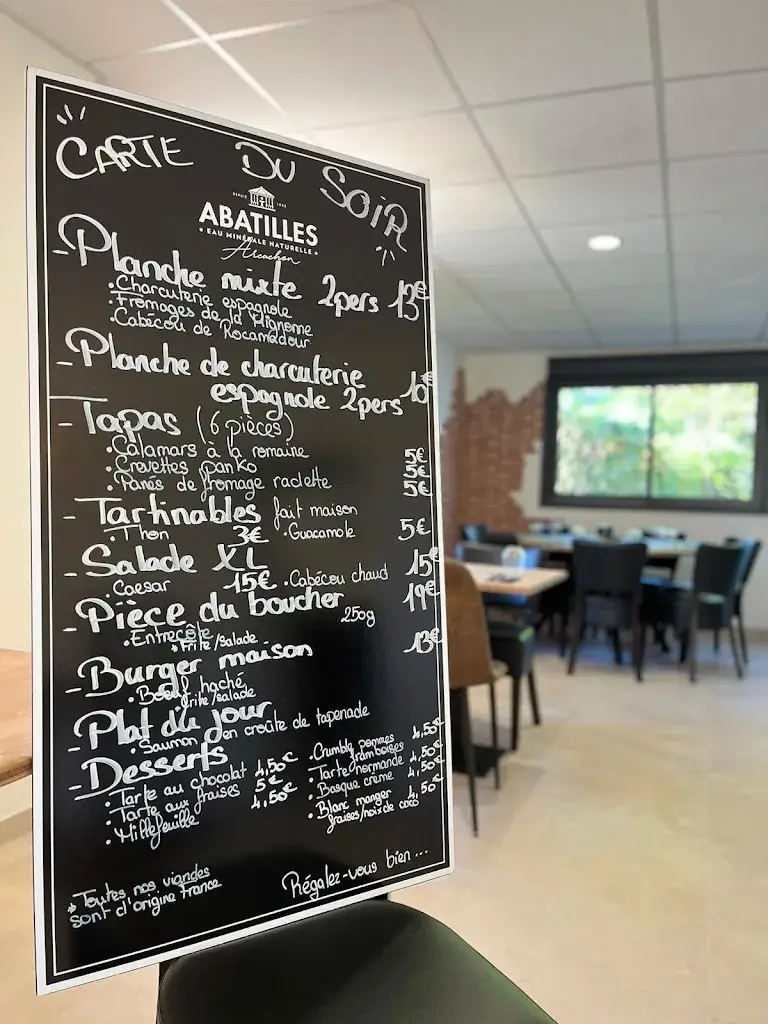 CARTE DU SOIR
DEPUIS 1925
ABATILLES
• EAU MINÉRALE NATURELLE •
Arcachon
- Planche mixte 2pers 13€
• Charcuterie espagnole
• Fromages de la Mignonne
• Cabécou de Rocamadour
- Planche de charcuterie
espagnole 2pers 10€
- Tapas (6 pièces)
• Calamars à la romaine 5€
• Crevettes panko 5€
• Panés de fromage raclette 5€
- Tartinables fait maison
• Thon 3€ • Guacamole 5€
- Salade XL
• Caesar 15€ • Cabécou chaud 15€
- Pièce du boucher 250g 19€
• Entrecôte
* Frite/Salade
- Burger maison 13€
• Boeuf haché
frite/salade
- Plat du jour
• Saumon en croûte de tapenade
- Desserts
• Tarte au chocolat 4,50€ • Crumble pommes framboises 4,50€
• Tarte aux fraises 5€ • Tarte normande 4,50€
• Millefeuille 4,50€ • Basque crème 4,50€
• Blanc manger 4,50€
fraises/noix de coco
* Toutes nos viandes
sont d'origine France
Régalez-vous bien ...